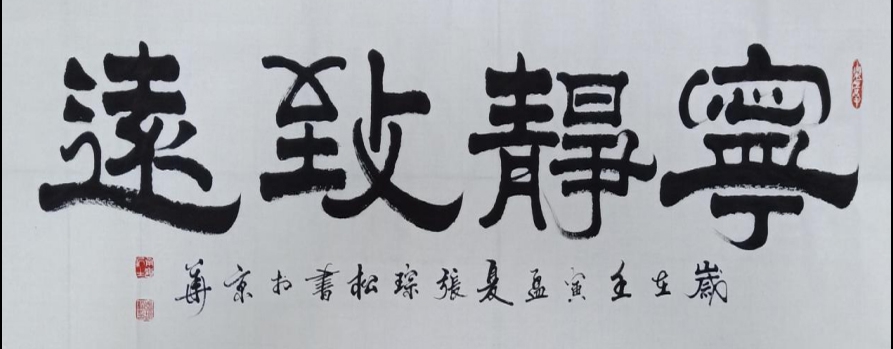 寧靜致遠
歲在壬寅孟夏張琮松書於京華